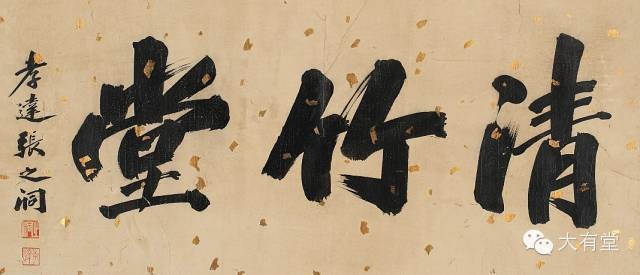 清竹堂
孝達張之洞
大有堂